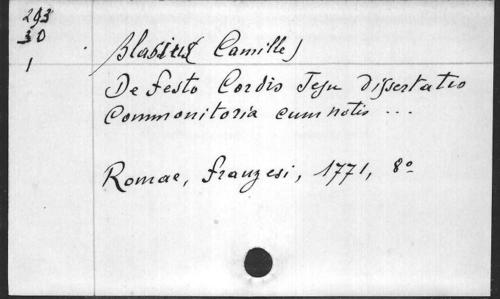 293
30
1
Blasius Camille)
De Festo Cordis Jesu dissertatio
Commonitoria cum notis ...
Romae, Franzesi, 1771, 8º